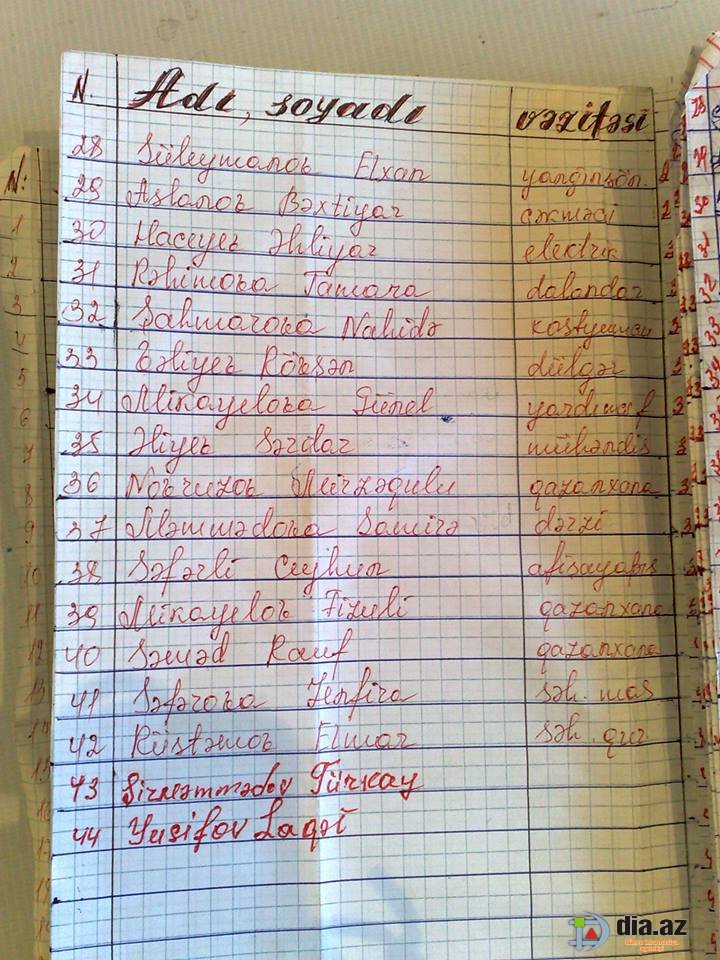 N. Adı, soyadı vəzifəsi
28 Süleymanov Elxan yanğınsön.
29 Aslanov Bəxtiyar çəkməçi
30 Hacıyev Əhliyar electrik
31 Rəhimova Tamara dalandar
32 Şahmarova Nahidə kostyumçu
33 Vəliyev Rövşən dülgər
34 Mikayelova Günel yardımçı f
35 Əliyev Sərdar mühəndis
36 Novruzov Mirzəqulu qazanxana
37 Məmmədova Samirə dərzi
38 Səfərli Ceyhun afişayapış
39 Mikayelov Fizuli qazanxana
40 Səməd Rauf qazanxana
41 Səfərova Zenfira səh. maş
42 Rüstəmov Elmar səh. qur.
43 Şirməmmədov Türkay
44 Yusifov Laqəi
N:
1
2
3
4
5
6
7
8
9
10
11
12
dia.az
dünya informasiya agentliyi